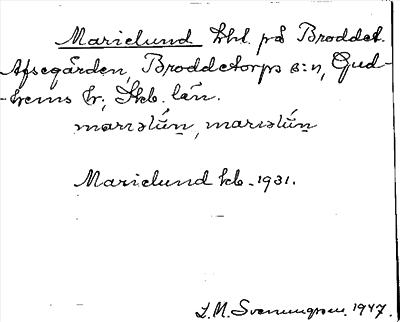 Marielund lht. på Broddet.
Afsegården, Broddetorps s:n, Gud-
-hems hr, Skb. län.
marɪəlúṇ, marɪəlúṇ
Marielund kb. 1931.
L.M. Svenungsson. 1947.